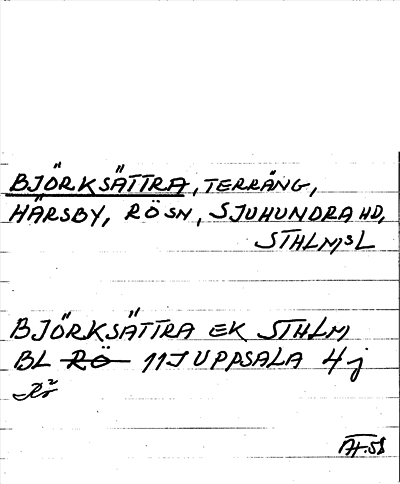 BJÖRKSÄTTRA, TERRÄNG,
HÄRSBY, RÖSN, SJUHUNDRA HD,
STHLMSL
BJÖRKSÄTTRA EK STHLM
BL RÖ 11J UPPSALA 4j